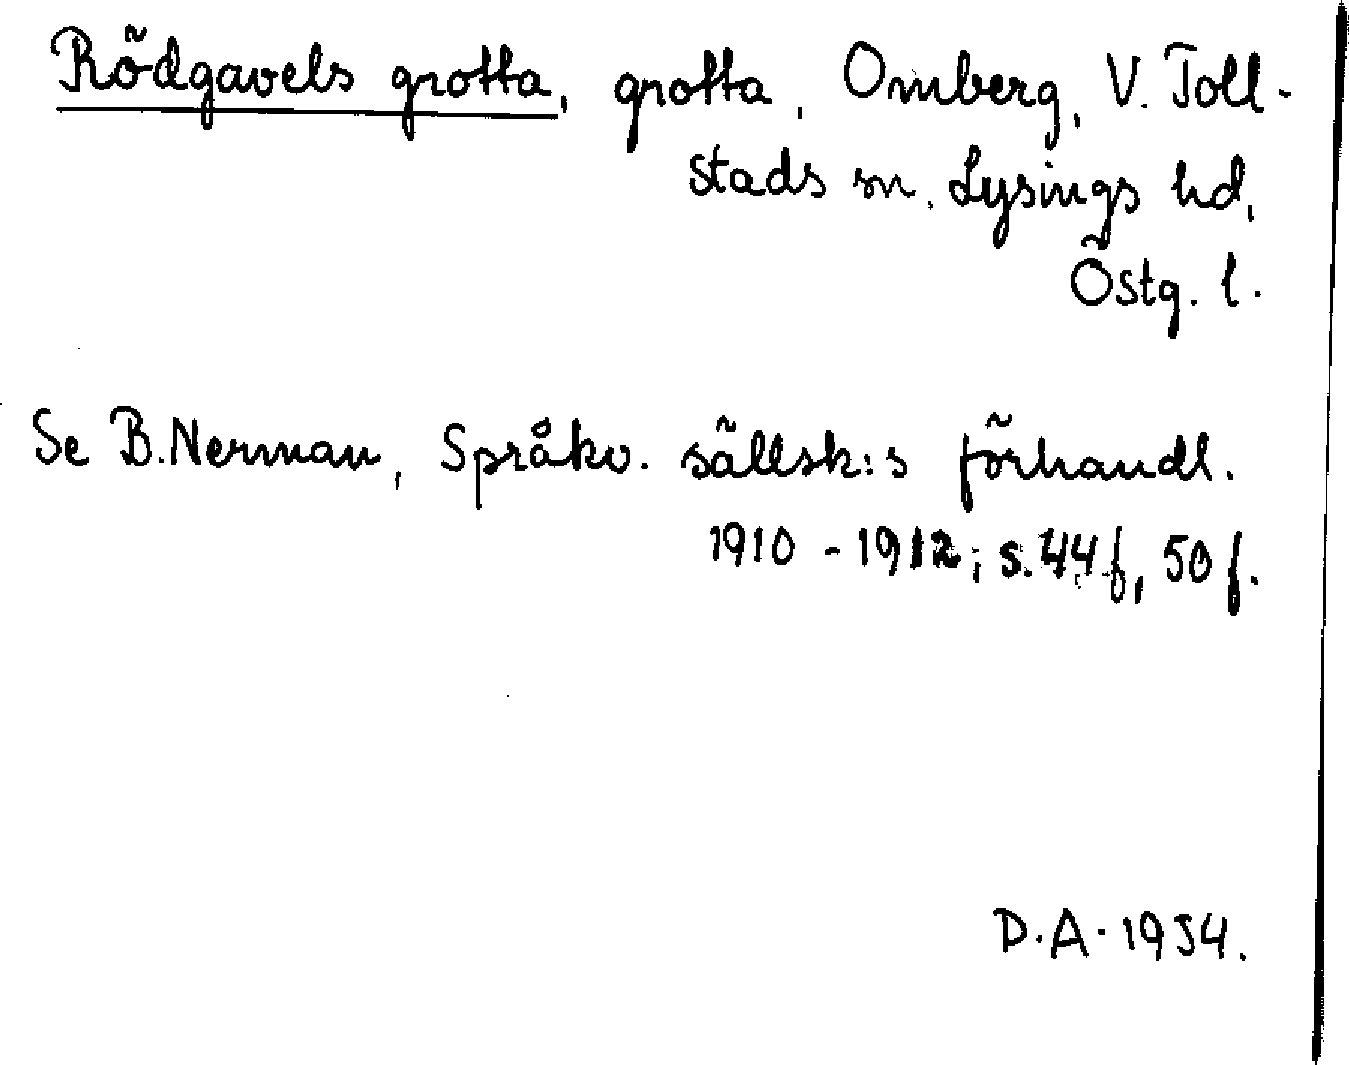 Rödgavels grotta, grotta, Omberg, V. Toll-
stads sn, Lysings hd,
Östg. l.
Se B. Nerman, Språkv. sällsk:s förhandl.
1910 - 1912; s. 44 f, 50 f.
D.A. 1954.